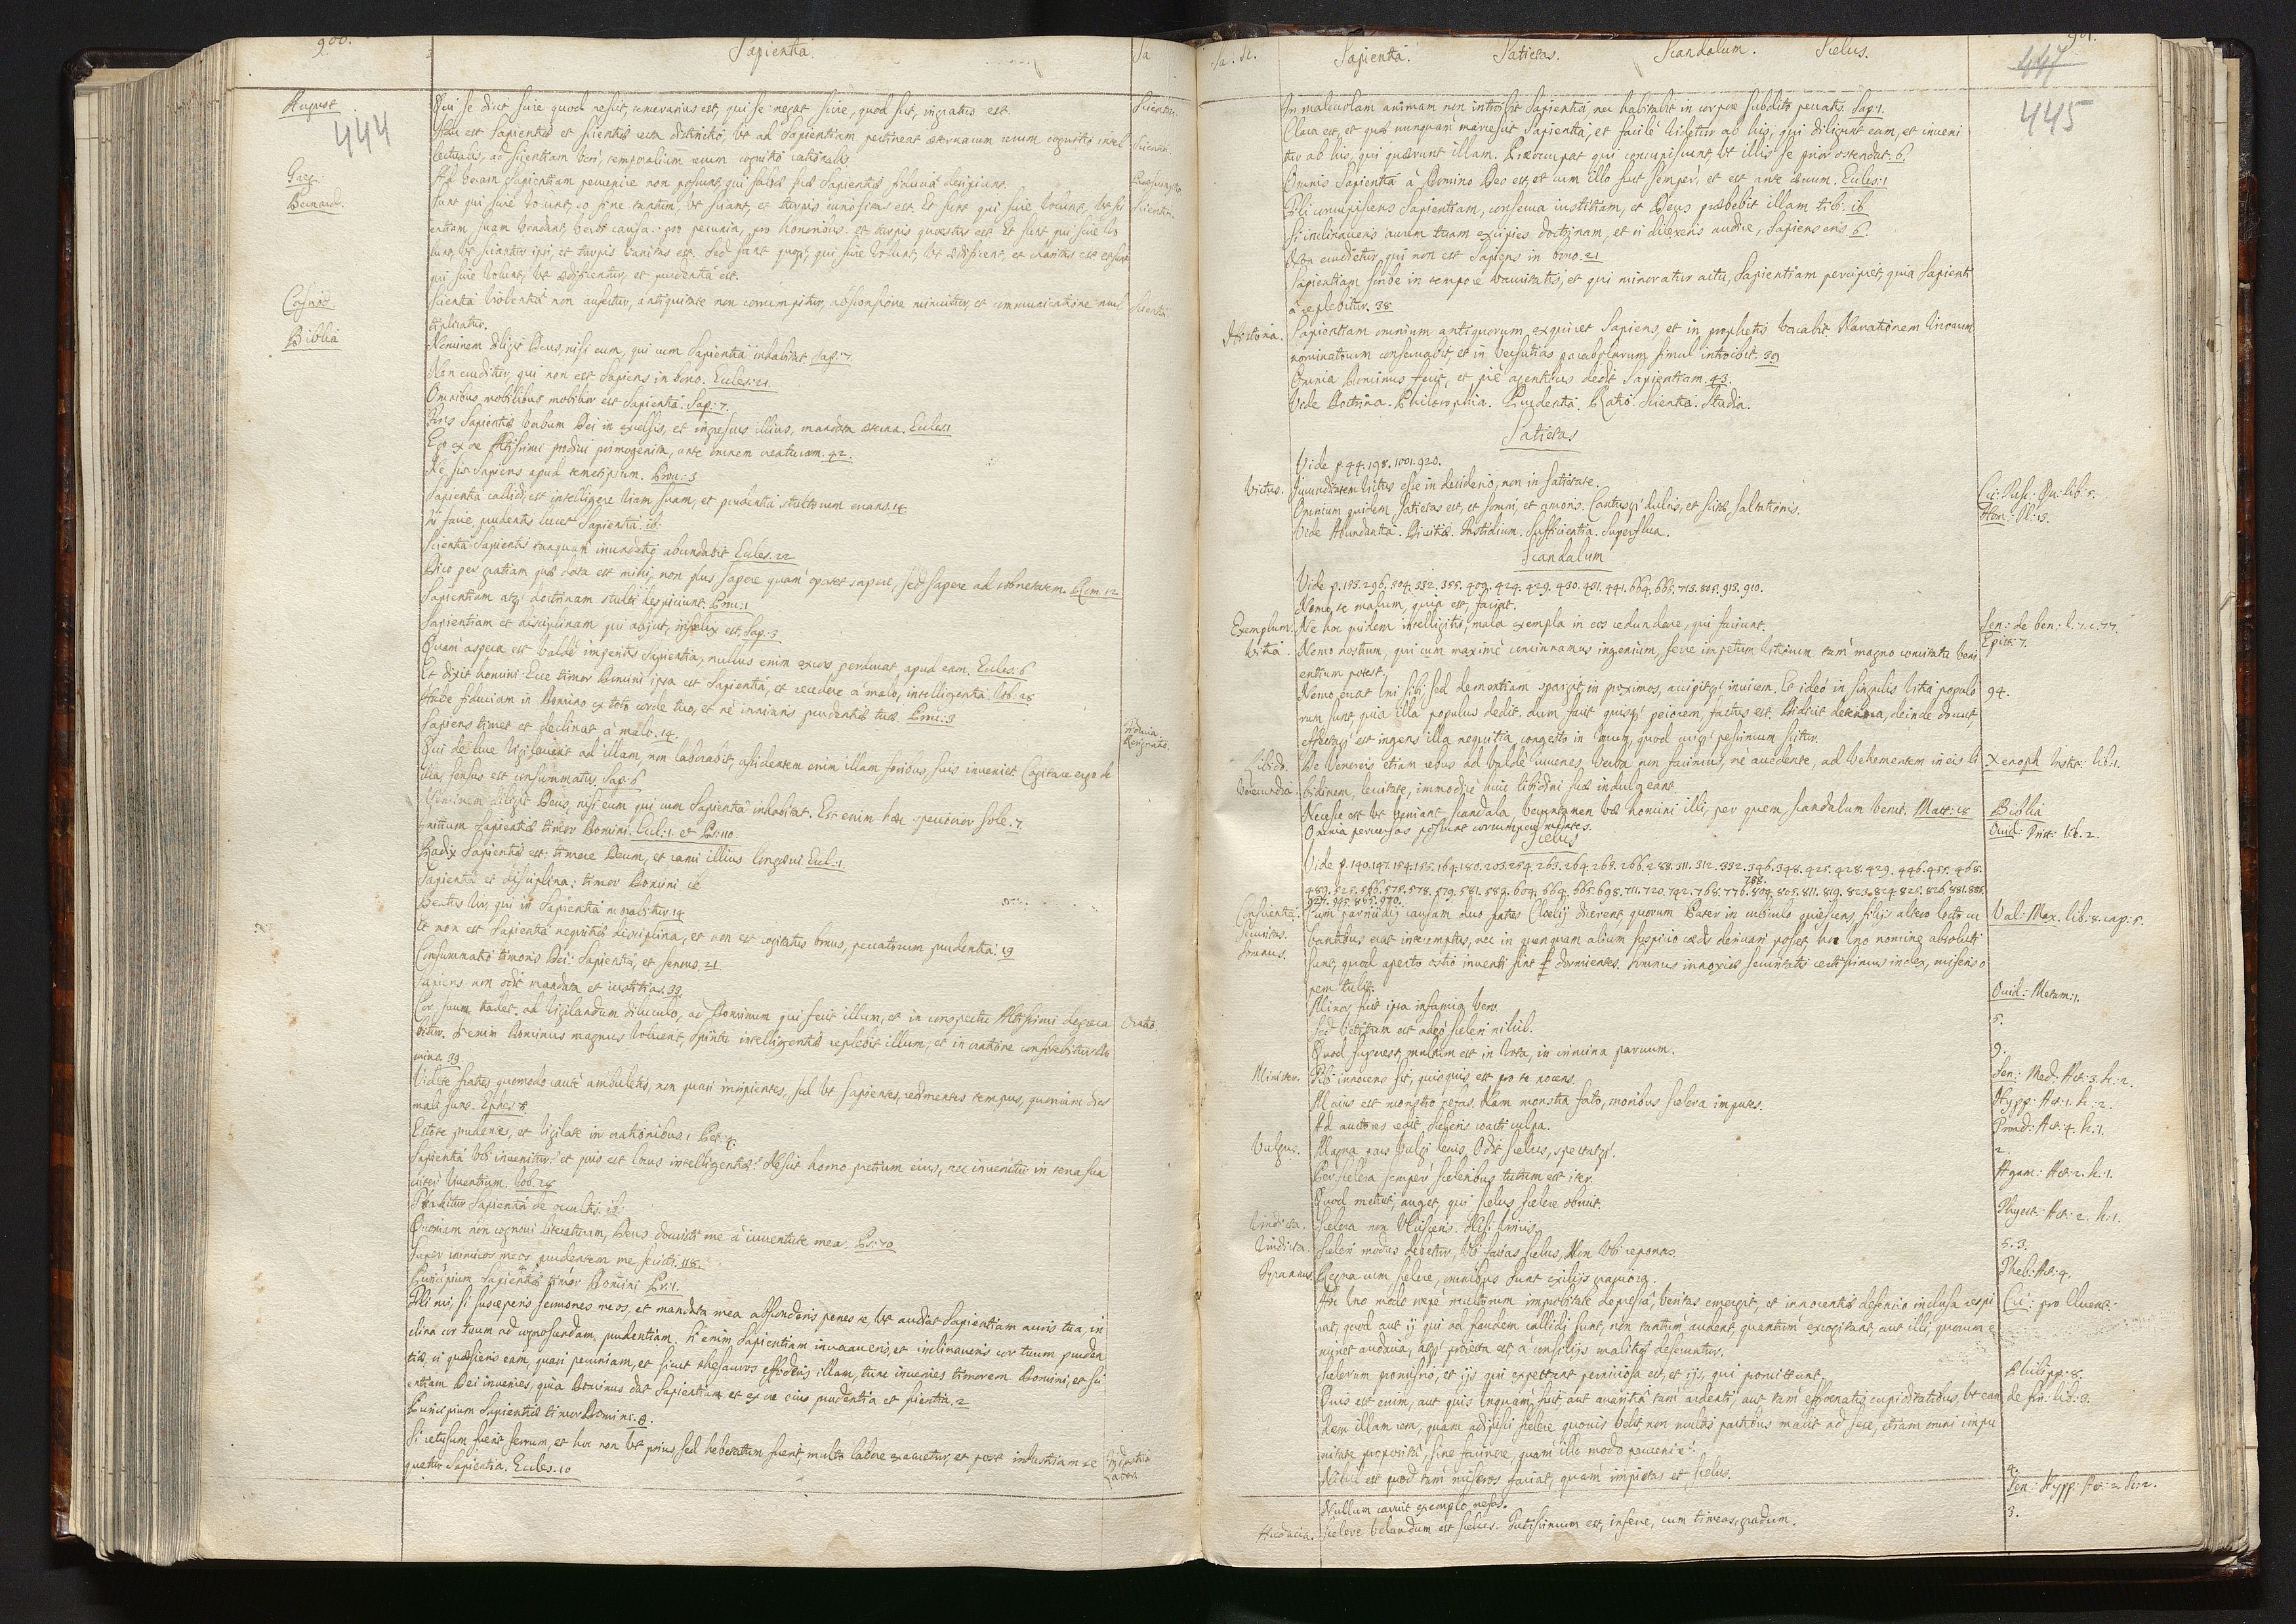 900.
Sapientia.
Sa
August.
444
Qui se dicit scire quod nescit, temerarius est, qui se negat scire, quod scit, ingratus est.
Scientia.
Hæc est Sapientiæ et scientiæ recta distinctio, vt ad Sapientiam pertineat æternarum rerum cognitio intel
Scientia.
lectualis, ad scientiam verò, temporalium rerum cognitio rationalis.
Greg:
Ad veram Sapientiam peruenire non possunt, qui falsæ suæ Sapientiæ fiducia decipiunt.
Bernard.
Sunt qui scire volunt, eo fine tantum, vt sciant, et turpis curiositas est. Et sunt qui scire volunt, vt sci
Scientia.
entiam suam vendant, verbi causa: pro pecunia, pro honoribus: et turpis quæstus est. Et sunt qui scire vo
lunt, vt sciantur ipsi, et turpis vanitas est. Sed sunt quoq; qui scire volunt, vt ædificent, et charitas est et sunt
qui scire volunt, vt ædificentur, et prudentia est.
Cassiod.
Scientia violentia non aufertur, antiquitate non corrumpitur, absconsione minuitur, et communicatione mul
Scientia
tiplicatur.
Biblia
Neminem diligit Deus, nisi eum, qui cum Sapientia inhabitat. Sap: 7.
Non eruditur, qui non est Sapiens in bono. Eccles: 21.
Omnibus mobilibus mobilior est Sapientia. Sap: 7.
Fons Sapientiæ verbum Dei in excelsis, et ingressus illius, mandata æterna. Eccles: 1
Ego ex ore Altissimi prodiui primogenita, ante omnem creaturam. 42.
Ne sis Sapiens apud temetipsum. Prou: 3
Sapientia callidi est intelligere viam suam, et prudentia stultorum errans. 14
In facie prudentis lucet Sapientia. ib:
Scientia Sapientis tanquam inundatio abundabit Eccles. 22
Dico per gratiam quæ data est mihi, non plus sapere quàm oportet sapere, sed sapere ad sobrietatem. Rom. 12
Sapientiam atq; doctrinam stulti despiciunt. Prou: 1
Sapientiam et disciplinam qui abijcit, infelix est. Sap. 3
Quàm aspera est valdè imperitis Sapientia, nullius enim excors perdurat, apud eam. Eccles: 6
Et dixit homini: Ecce timor Domini ipsa est Sapientia, et recedere à malo, intelligentia. Iob. 28
Habe fiduciam in Domino ex toto corde tuo, et nè innitaris prudentiæ tuæ. Prou: 3
Sapiens timet et declinat à malo. 14.
Qui de luce vigilauerit ad illam, non laborabit, assidentem enim illam foribus suis inueniet. Cogitare ergo de
illa, sensus est consummatus. Sap: 6
Neminem diligit Deus, nisi eum qui cum Sapientia inhabitat. Est enim hæc speciosior sole. 7.
Initium Sapientiæ timor Domini. Eccl: 1. et Ps: 110.
Radix Sapientiæ est: timere Deum, et rami illius longæui. Eccl: 1.
Sapientia et disciplina: timor Domini ib
Beatus vir, qui in Sapientia morabitur. 14
Et non est Sapientia nequitiæ disciplina, et non est cogitatus bonus, peccatorum prudentia. 19
Consummatio timoris Dei: Sapientia, et sensus. 21
Sapiens non odit mandata et iustitias. 33
Cor suum tradet, ad vigilandum diluculo, ad Dominum qui fecit illum, et in conspectu Altissimi depreca
Oratio.
bitur. Si enim Dominus magnus voluerit, Spiritu intelligentiæ replebit illum, et in oratione confitebitur Do
mino. 39
Videte fratres, quomodo cautè ambuletis, non quasi insipientes, sed vt sapientes, redimentes tempus, quoniam dies
mali sunt. Ephes: 5
Estote prudentes, et vigilate in orationibus. 1. Pet: 4.
Sapientia vbi inuenitur? et quis est locus intelligentiæ? Nescit homo pretium eius, nec inuenitur in terra sua
uiter viuentium. Iob. 28
Trahitur Sapientia de occultis. ib:
Quoniam non cognoui literaturam, Deus docuisti me à iuuentute mea. Ps: 70
Super inimicos meos prudentem me fecisti. 118.
Principium Sapientiæ timor Domini Pr: 1.
Fili mi, si susceperis sermones meos, et mandata mea absconderis penes te, vt audiat Sapientiam auris tua, in
clina cor tuum ad cognoscendam prudentiam. Si enim Sapientiam inuocaueris, et inclinaueris cor tuum pruden
tiæ, si quæsieris eam, quasi pecuniam, et sicut thesauros effoderis illam, tunc inuenies timorem Domini, et sci
entiam Dei inuenies, quia Dominus dat Sapientiam, et ex ore eius prudentia et scientia. 2
Principium Sapientiæ timor Domini. 9.
Si retusum fuerit ferrum, et hoc non vt prius, sed hebetatum fuerit, multo labore exacuetur, et post industriam se
Industria
Labor
quetur Sapientia. Eccles. 10
Sa. Sc.
Sapientia.
Satietas.
Scandalum.
Scelus.
901.
447
445
In maleuolam animam non introibit Sapientia nec habitabit in corpore subdito peccatis. Sap: 1.
Clara est, et quæ nunquam marcescit Sapientia, et facilè videtur ab his, qui diligunt eam, et inueni
tur ab his, qui quærunt illam. Præoccupat qui concupiscunt vt illis se prior ostendat. 6.
Omnis Sapientia à Domino Deo est, et cum illo fuit semper, et est ante æuum. Eccles: 1
Fili concupiscens Sapientiam, conserua iustitiam, et Deus præbebit illam tibi. ib
Si inclinaueris aurem tuam excipies doctrinam, et si dilexeris audire, Sapiens eris 6.
Non erudietur, qui non est Sapiens in bono. 21
Sapientiam scribe in tempore vacuitatis, et qui minoratur actu, Sapientiam percipiet, quia Sapienti
a replebitur. 38
Historia.
Sapientiam omnium antiquorum exquiret Sapiens, et in prophetis vacabit. Narrationem virorum
nominatorum conseruabit, et in versutias parabolarum simul introibit. 39
Omnia Dominus fecit, et piè agentibus dedit Sapientiam. 43.
Vide Doctrina. Philosophia. Prudentia. Ratio. Scientia. Studia.
Satietas
Vide p. 44. 198. 1001. 920.
Victus.
Iucunditatem victus esse in desiderio, non in satietate.
Cic: Tusc: Qu: lib: 5.
Omnium quidem satietas est, et somni, et amoris. Cantusq; dulcis, et scitæ saltationis.
Hom: Il: 13.
Vide Abundantia. Diuitiæ. Fastidium. Sufficientia. Superflua.
Scandalum
Vide p. 193. 296. 304. 332. 355. 409. 424. 429. 430. 431. 441. 664. 665. 713. 805. 913. 910.
Nemo te malum, quia est, faciat.
Exemplum.
Ne hoc quidem intelligitis, mala exempla in eos redundare, qui faciunt.
Sen: de ben: l. 7. c. 27.
Vitia.
Nemo nostrum, qui cum maximè concinnamus ingenium, ferre impetum vitiorum tàm magno comitatu veni
Epist: 7.
entium potest.
Nemo errat vni sibi, sed dementiam spargit in proximos, accipitq; inuicem. Et ideò in singulis vitia populo
94.
rum sunt, quia illa populus dedit. dum facit quisq; peiorem, factus est. Didicit deteriora, deinde docuit,
effectaq; est ingens illa nequitia, congesto in vnum, quod cuiq; pessimum scitur.
Libido.
De Venereis etiam rebus ad valdè iuuenes, verba non facimus, nè accedente, ad vehementem in eis li
Xenoph. Instit: lib: 1.
Verecundia.
bidinem, leuitate, immodicè huic libidini suæ indulgeant.
Necesse est vt veniant scandala, veruntamen væ homini illi, per quem scandalum venit. Matt: 18
Biblia
Omnia peruersas possunt corrumpere mentes.
Ouid: Trist: lib. 2.
Scelus
Conscientia.
Securitas.
Somnus.
Cum parricidij causam duo fratres Cloelij dicerent, quorum Pater in cubiculo quiescens, filijs altero lecto cu
Val: Max. lib: 8. cap: 1.
bantibus erat interemptus, nec in quenquam alium suspicio cædis deriuari posset, hoc vno nomine absoluti
sunt, quod aperto ostio inuenti sint dormientes. Somnus innoxiæ securitatis certissimus index, miseris o
pem tulit.
Minor fuit ipsa infamia vero.
Ouid: Metam: 1.
Sed vetitum est adeò sceleri nihil.
5.
Quod superest, multum est in vota, in crimina paruum.
9.
Minister.
Tibi innocens sit, quisquis est pro te nocens.
Sen: Med: Act: 3. sc: 2.
Maius est monstro nefas. Nam monstra fato, moribus scelera imputes.
Hypp: Act: 1. sc: 2.
Ad auctores redit, sceleris coacti culpa.
Troad: Act: 4. sc: 1.
Vulgus.
Magna pars vulgi leuis, Odit scelus, spectatq;.
2.
Per scelera semper sceleribus tutum est iter.
Agam: Act: 2. sc: 1.
Quod metuit, auget, qui scelus scelere obruit.
Vindicta.
Scelera non vlcisceris. Nisi vincis.
Thyest: Act: 2. sc: 1.
Vindicta.
Sceleri modus debetur, vbi facias scelus, Non vbi reponas.
5. 3.
Tyrannus.
Regna cum scelere, omnibus sunt exilijs grauiora.
Theb: Act: 4.
Hoc vno modo sæpè multorum improbitate depressa, veritas emergit, et innocentiæ defensio inclusa respi
Cic: pro Cluent:
rat, quod aut ij qui ad fraudem callidi sunt, non tantùm audent, quantùm excogitant, aut illi, quorum e
minet audacia, atq; proiecta est, à consilijs malitiæ deseruntur.
Scelerum promissio, et ijs qui expectant perniciosa est, et ijs, qui promittunt.
Philipp: 8.
Quis est enim, aut quis vnquam fuit, aut auaritia tàm ardenti, aut tàm effrenatis cupiditatibus, vt ean
de fin: lib: 3.
dem illam rem, quam adipisci scelere quouis velit, non multis partibus malit ad sese, etiam omni impu
nitate proposita, sine facinore, quàm illo modo peruenire?
Nihil est quod tàm miseros faciat, quàm impietas et scelus.
4.
Nullum caruit exemplo nefas.
Sen: Hypp: Act: 2. sc: 2.
Audacia.
Scelere velandum est scelus. Tutissimum est, inferre, cum timeas, gradum.
3.